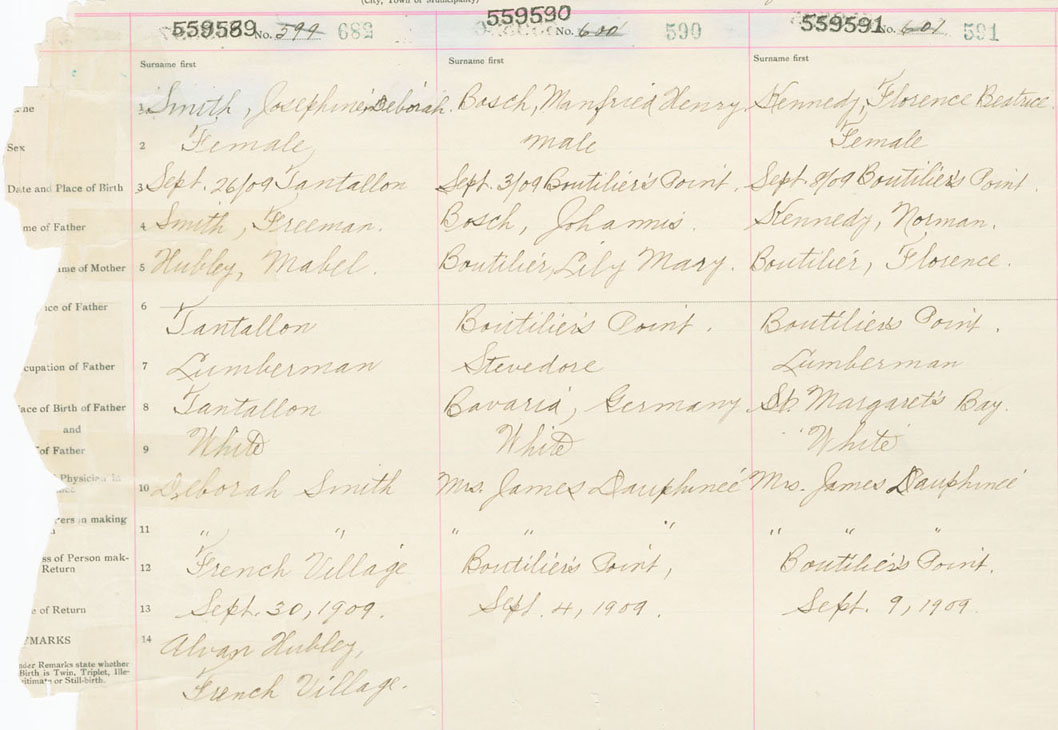 (City, Town or Municipality)
559589 No. 599 682 559590 No. 600 590 559591 No. 601 591
Surname first Surname first Surname first
me 1 Smith, Josephine Deborah Bosch, Manfried Henry Kennedy, Florence Beatrice
Sex 2 Female male Female
Date and Place of Birth 3 Sept. 26/09 Tantallon Sept. 3/09 Boutilier's Point. Sept. 8/09 Boutilier's Point.
me of Father 4 Smith, Freeman. Bosch, Johannis. Kennedy, Norman.
me of Mother 5 Hubley, Mabel. Boutilier, Lily Mary. Boutilier, Florence.
ce of Father 6 Tantallon Boutilier's Point. Boutilier's Point.
cupation of Father 7 Lumberman Stevedore Lumberman
ace of Birth of Father 8 Tantallon Bavaria, Germany St. Margaret's Bay.
and
of Father 9 White White White
Physician in 10 Deborah Smith Mrs. James Dauphinee Mrs. James Dauphinee
erson making 11 " " " " " " " "
ss of Person mak-
Return 12 French Village Boutilier's Point, Boutilier's Point.
e of Return 13 Sept. 30, 1909. Sept. 4, 1909. Sept. 9, 1909.
MARKS 14 Alvan Hubley,
nder Remarks state whether
Birth is Twin, Triplet, Ille-
gitimate or Still-birth.
French Village.